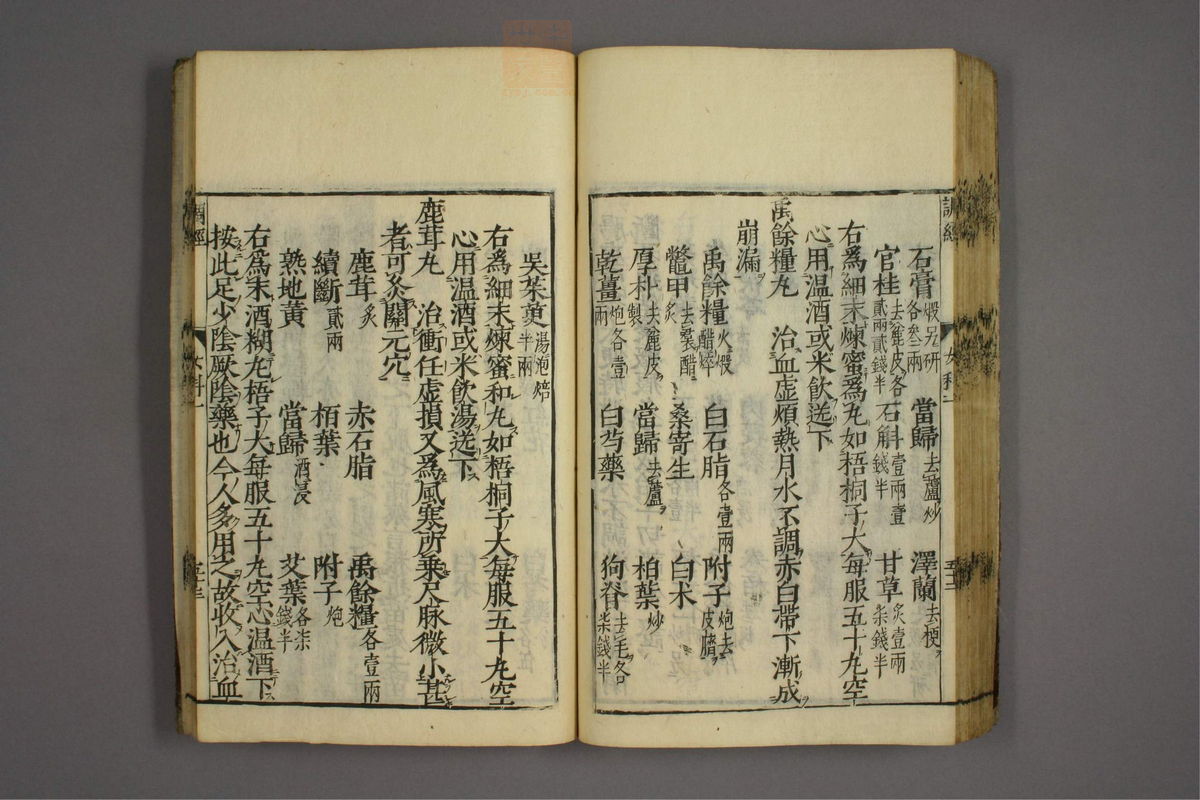 石膏煆另研各叄兩 當歸去蘆炒 澤蘭去梗
官桂去麄皮各貳兩貳錢半 石斛壹兩壹錢半 甘草炙壹兩柒錢半
右爲細末煉蜜爲丸如梧桐子大每服五十丸空
心用温酒或米飲送下
禹餘糧丸 治血虚煩熱月水不調赤白帶下漸成
崩漏
禹餘糧火煆醋焠 白石脂各壹兩 附子炮去皮臍
鱉甲去裙醋炙 桑寄生 白术
厚朴去麄皮製 當歸去蘆 柏葉炒
乾薑炮各壹兩 白芍藥 狗脊去毛各柒錢半
吳茱萸湯泡焙半兩
右爲細末煉蜜和丸如梧桐子大每服五十丸空
心用温酒或米飲湯送下
鹿茸丸 治衝任虚損又爲風寒所乗尺脉微小甚
者可灸關元穴
鹿茸炙 赤石脂 禹餘糧各壹兩
續斷貳兩 栢葉 附子炮
熟地黄 當歸酒浸 艾葉各柒錢半
右爲末酒糊丸梧子大每服五十丸空心温酒下
按此足少陰厥陰藥也今人多用之故收入治血